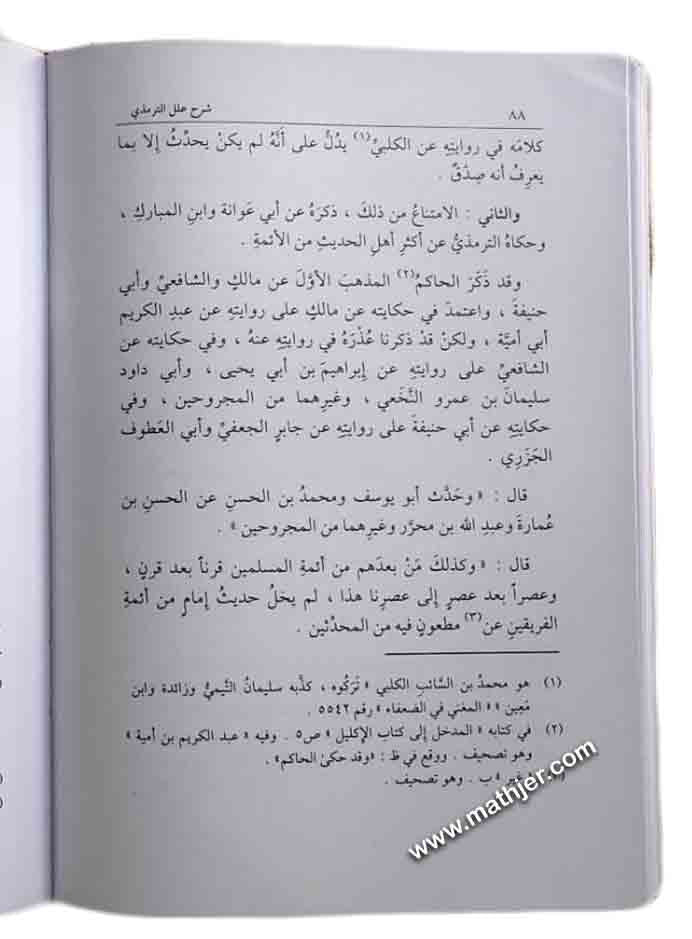 ٨٨ شرح علل الترمذي
كلامَه في روايتِهِ عن الكلبيِّ(١) يدُلُّ على أنَّهُ لم يكنْ يحدِّثُ إلا بما
يعرِفُ أنه صِدْقٌ .
والثاني : الامتناعُ من ذلكَ ، ذكرَهُ عن أبي عَوانة وابنِ المباركِ ،
وحكاهُ الترمذيُّ عن أكثرِ أهلِ الحديثِ من الأئمةِ .
وقد ذَكَرَ الحاكمُ(٢) المذهبَ الأوَّلَ عن مالكٍ والشافعيِّ وأبي
حنيفةَ ، واعتمدَ في حكايته عن مالكٍ على روايتِهِ عن عبدِ الكريم
أبي أميَّة ، ولكنْ قدْ ذكرنا عُذْرَهُ في روايتِهِ عنهُ ، وفي حكايته عن
الشافعيِّ على روايتِهِ عن إبراهيمَ بن أبي يحيى ، وأبي داود
سليمانَ بن عمرو النَّخَعي ، وغيرِهما من المجروحين ، وفي
حكايتِهِ عن أبي حنيفةَ على روايتِهِ عن جابرٍ الجعفيِّ وأبي العَطوف
الجَزَرِي .
قال : «وحَدَّث أبو يوسف ومحمدُ بن الحسنِ عن الحسنِ بنِ
عُمارةَ وعبدِ الله بن محرَّر وغيرِهما من المجروحين» .
قال : «وكذلكَ مَنْ بعدَهم من أئمةِ المسلمين قرناً بعد قرنٍ ،
وعصراً بعد عصرٍ إلى عصرِنا هذا ، لم يخلُ حديثُ إمامٍ من أئمةِ
الفريقينِ عن(٣) مطعونٍ فيه من المحدِّثين .
(١) هو محمدُ بن السَّائبِ الكلبي «تَرَكُوه ، كذَّبه سليمانُ التَّيميُّ وزائدة وابن
مَعِين» «المغني في الضعفاء» رقم ٥٥٤٢ .
(٢) في كتابه «المدخل إلى كتاب الإكليل» ص٥ . وفيه «عبد الكريم بن أمية»
وهو تصحيف . ووقع في ظ : «وقد حكىٰ الحاكم» .
غير» ب . وهو تصحيف .
www.mathjer.com